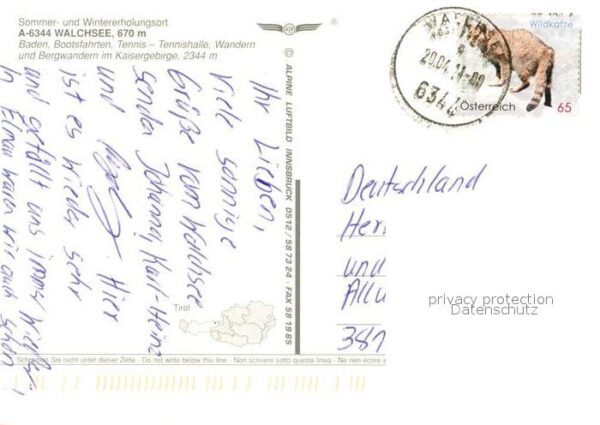 Sommer- und Wintererholungsort
A-6344 WALCHSEE, 670 m
Baden, Bootsfahrten, Tennis – Tennishalle, Wandern
und Bergwandern im Kaisergebirge, 2344 m
®
© ALPINE LUFTBILD INNSBRUCK 0512/58 73 24 · FAX 58 19 65
Ihr Lieben,
viele sonnige
Grüße vom Walchsee
senden Johanna, Karl-Heinz
und
Hier
ist es wieder sehr
und gefällt uns immer
in
waren wir auch schon
Tirol
Schreiben Sie nicht unter dieser Zeile - Do not write below this line - Non scrivere sotto questa linea - Ne rien écrire
WALCHSEE
20.04.11-00
6344
Wildkatze
Österreich
65
Deutschland
Her
und
Allu
387
privacy protection
Datenschutz